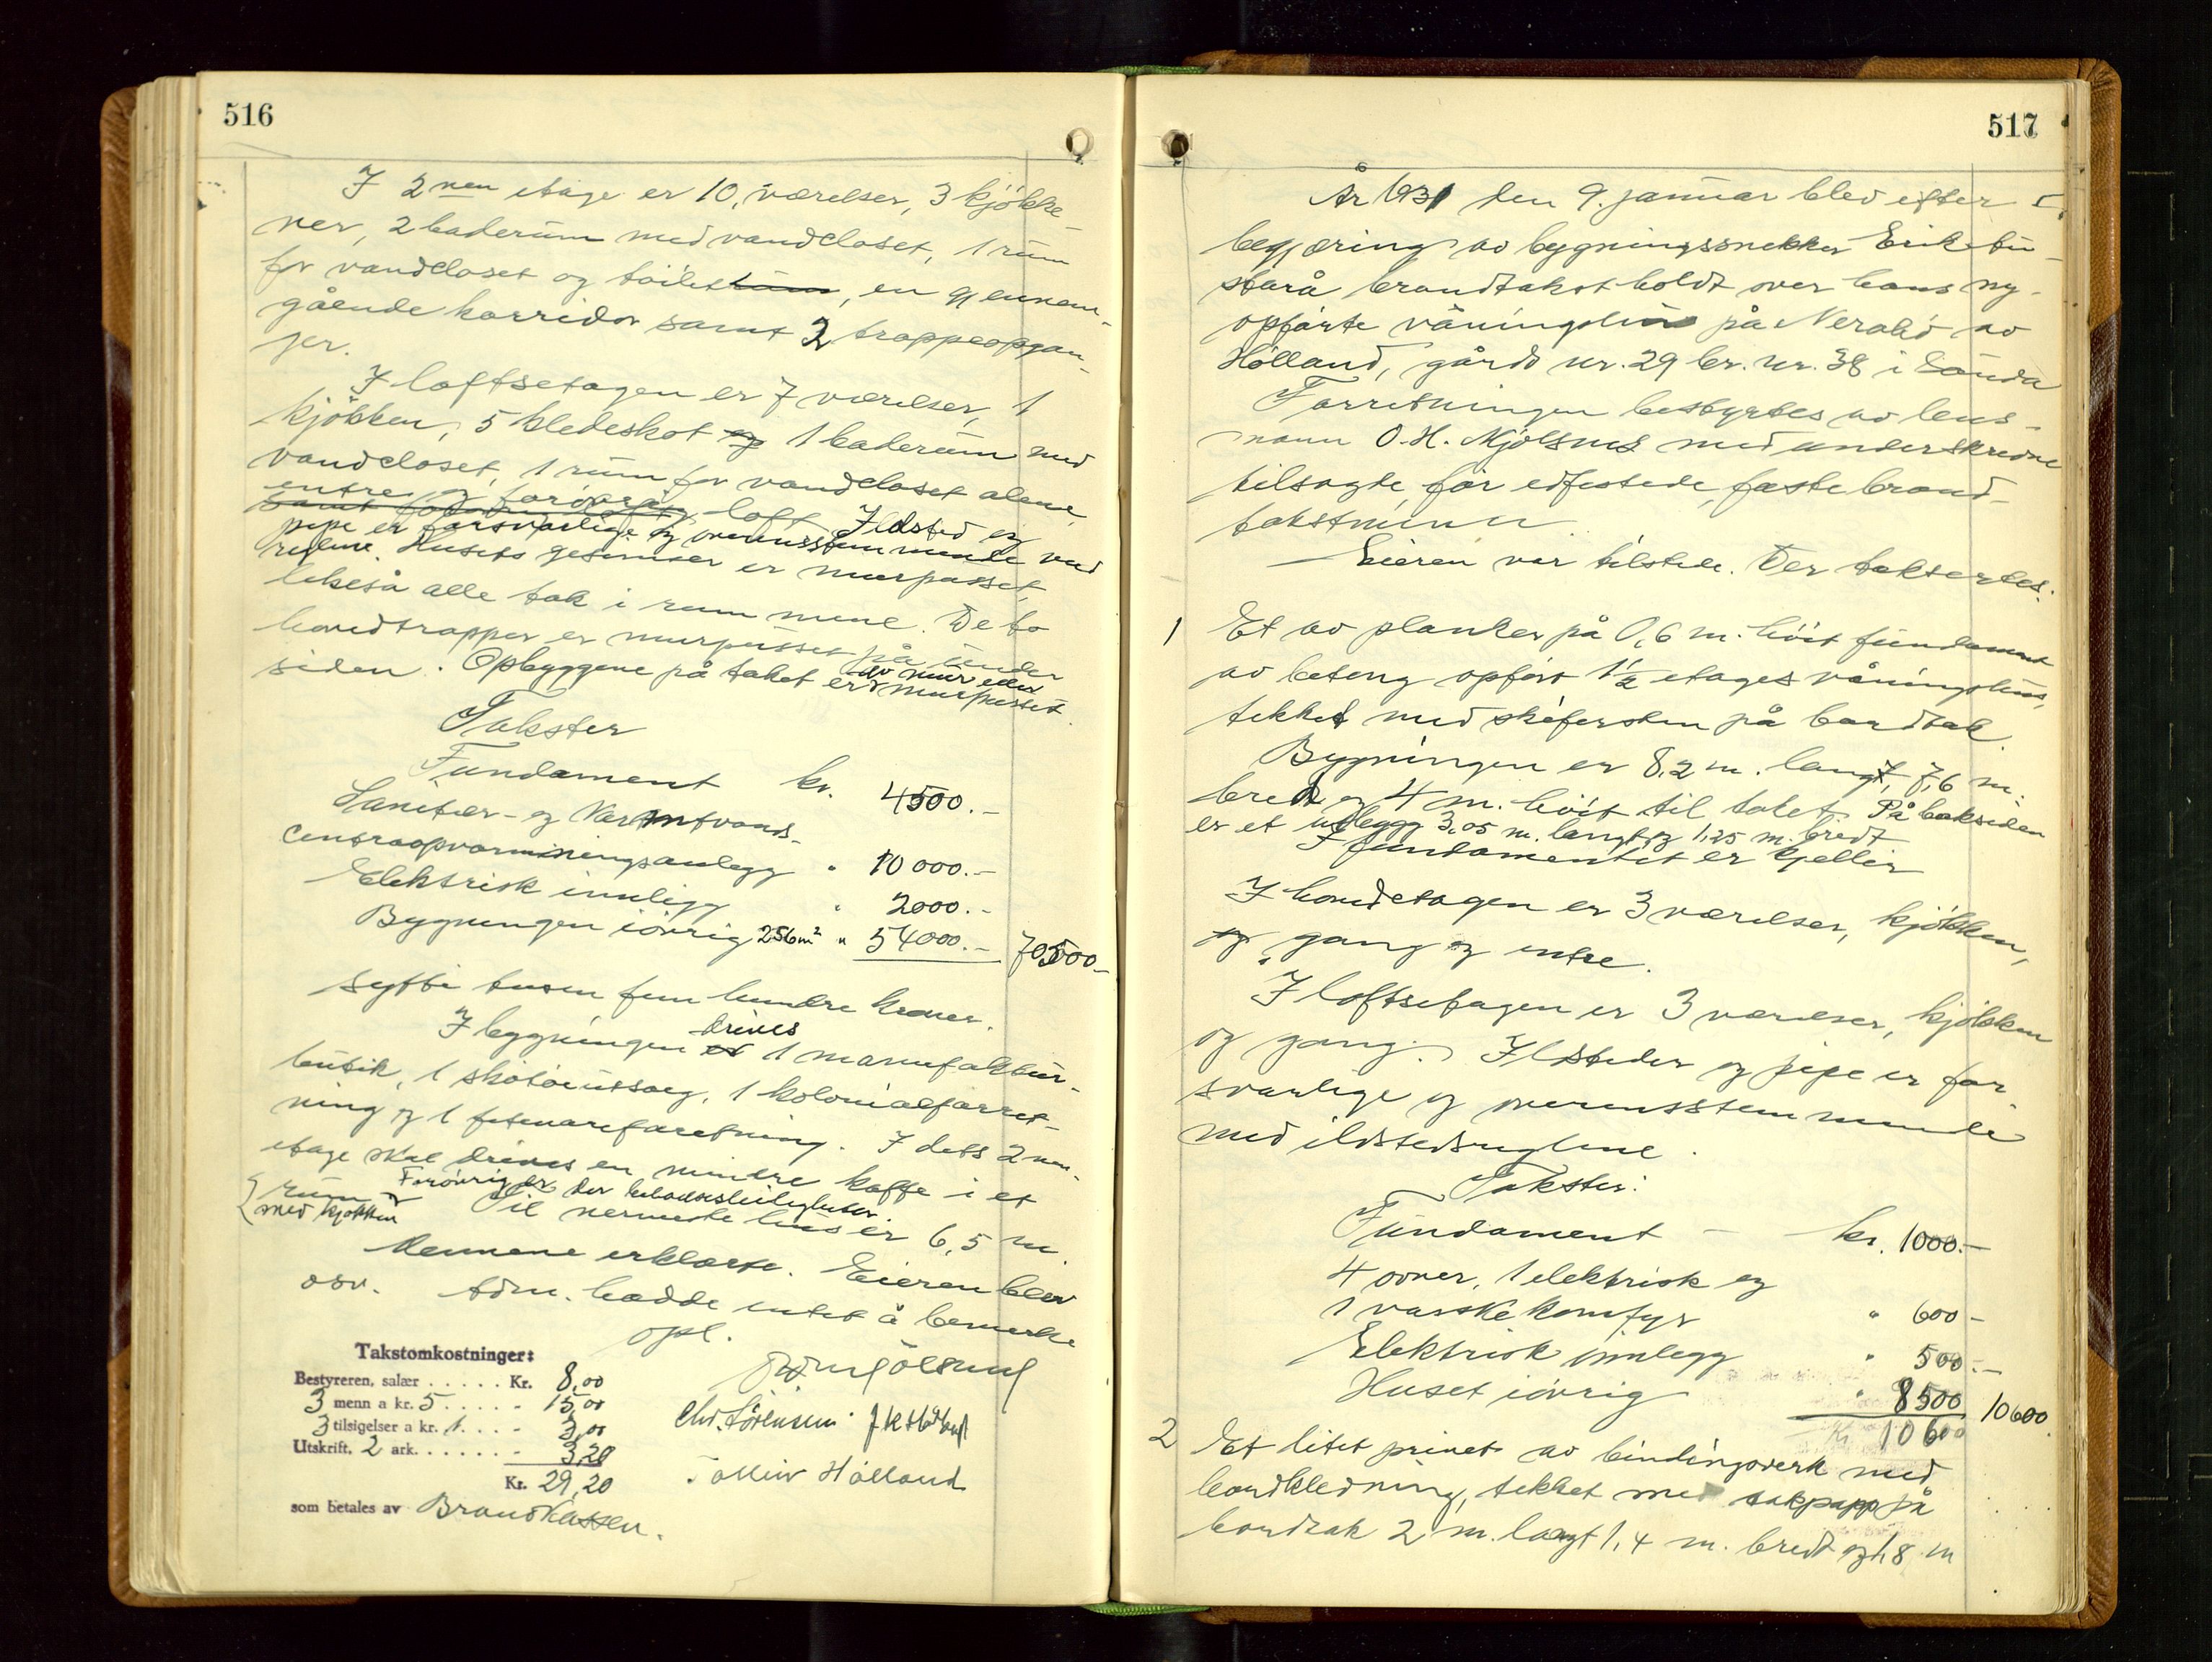 516
I 2nen etage er 10 værelser, 3 kjökke-
ner, 2 baderum med vandcloset, 1 rum
for vandcloset og toilet, en gjennem-
gående korridor samt 2 trappeopgan-
ger.
I loftsetagen er 7 værelser, 1
kjökken, 5 kledeskot og 1 baderum med
vandcloset, 1 rum for vandcloset alene,
entre og forövrig loft. Ildsted og
pipe er forsvarlige og overensstemmende med
reglene. Husets gesimser er murpusset,
likeså alle tak i rummene. De to
hovedtrapper er murpusset på under
siden. Opbyggene på taket er av mur eller murpusset.
Takster
Fundament kr. 4500.-
Sanitær- og Varmtvands-
centraopvarmningsanlegg " 10 000.-
Elektrisk innlegg " 2000.-
Bygningen iövrig 256m² " 54000.- 70500.-
sytti tusen fem hundre kroner.
I bygningen drives 1 manufaktur-
butik, 1 skotöiutsalg, 1 kolonialforret-
ning og 1 fetevareforetning. I dets 2nen
etage skal drives en mindre kaffe i et
rum med kjökken Forövrig er der beboelsesleiligheter
Til nermeste hus er 6,5 m.
Mennene erklærte. Eieren blev
osv. Adm. hadde intet å bemerke
opl.
Takstomkostninger:
Bestyreren, salær . . . . . Kr. 8,00
3 menn a kr. 5 . . . . . - 15,00
3 tilsigelser a kr. 1 . . . . - 3,00
Utskrift, 2 ark . . . . . . - 3,20
Kr. 29,20
som betales av Brandkassen.
Chr. Sörensen
Tolleiv Hålland
517
År 1931 den 9. januar blev efter
begjæring av bygningssnekker Erik
brandtakst holdt over hans ny-
opförte våningshus på Neralid av
Hålland, gårds nr. 29 br. nr. 38 i Sauda
Forretningen bestyrtes av lens-
mann O. H. Mjölsnes med underskrevne
tilsagte för edfestede faste brand-
takstmenn
Eieren var tilstede. Der takseredes:
1 Et av planker på 0,6 m. höit fundament
av betong opfört 1½ etages våningshus,
tekket med skifersten på bordtak.
Bygningen er 8,2 m. lang, 7,6 m.
bred og 4 m. höit til taket. På baksiden
er et utbygg 3,05 m. langt og 1,25 m. bredt
I fundamentet er kjeller
I hovedetagen er 3 værelser, kjökken,
og gang og entre.
I loftsetagen er 3 værelser, kjökken
og gang. Ildsteder og pipe er for
svarlige og overensstemmende
med ildstedsreglene.
Takster:
Fundament - kr. 1000.-
4 ovner, 1 elektrisk og
1 vaske komfyr " 600 -
Elektrisk innlegg " 500.-
Huset iövrig " 8500 10600.
Kr. 10600
2 Et litet privet av bindingsverk med
bordkledning, tekket med takpapp på
bordtak 2 m. langt 1,4 m. bredt og 1,8 m